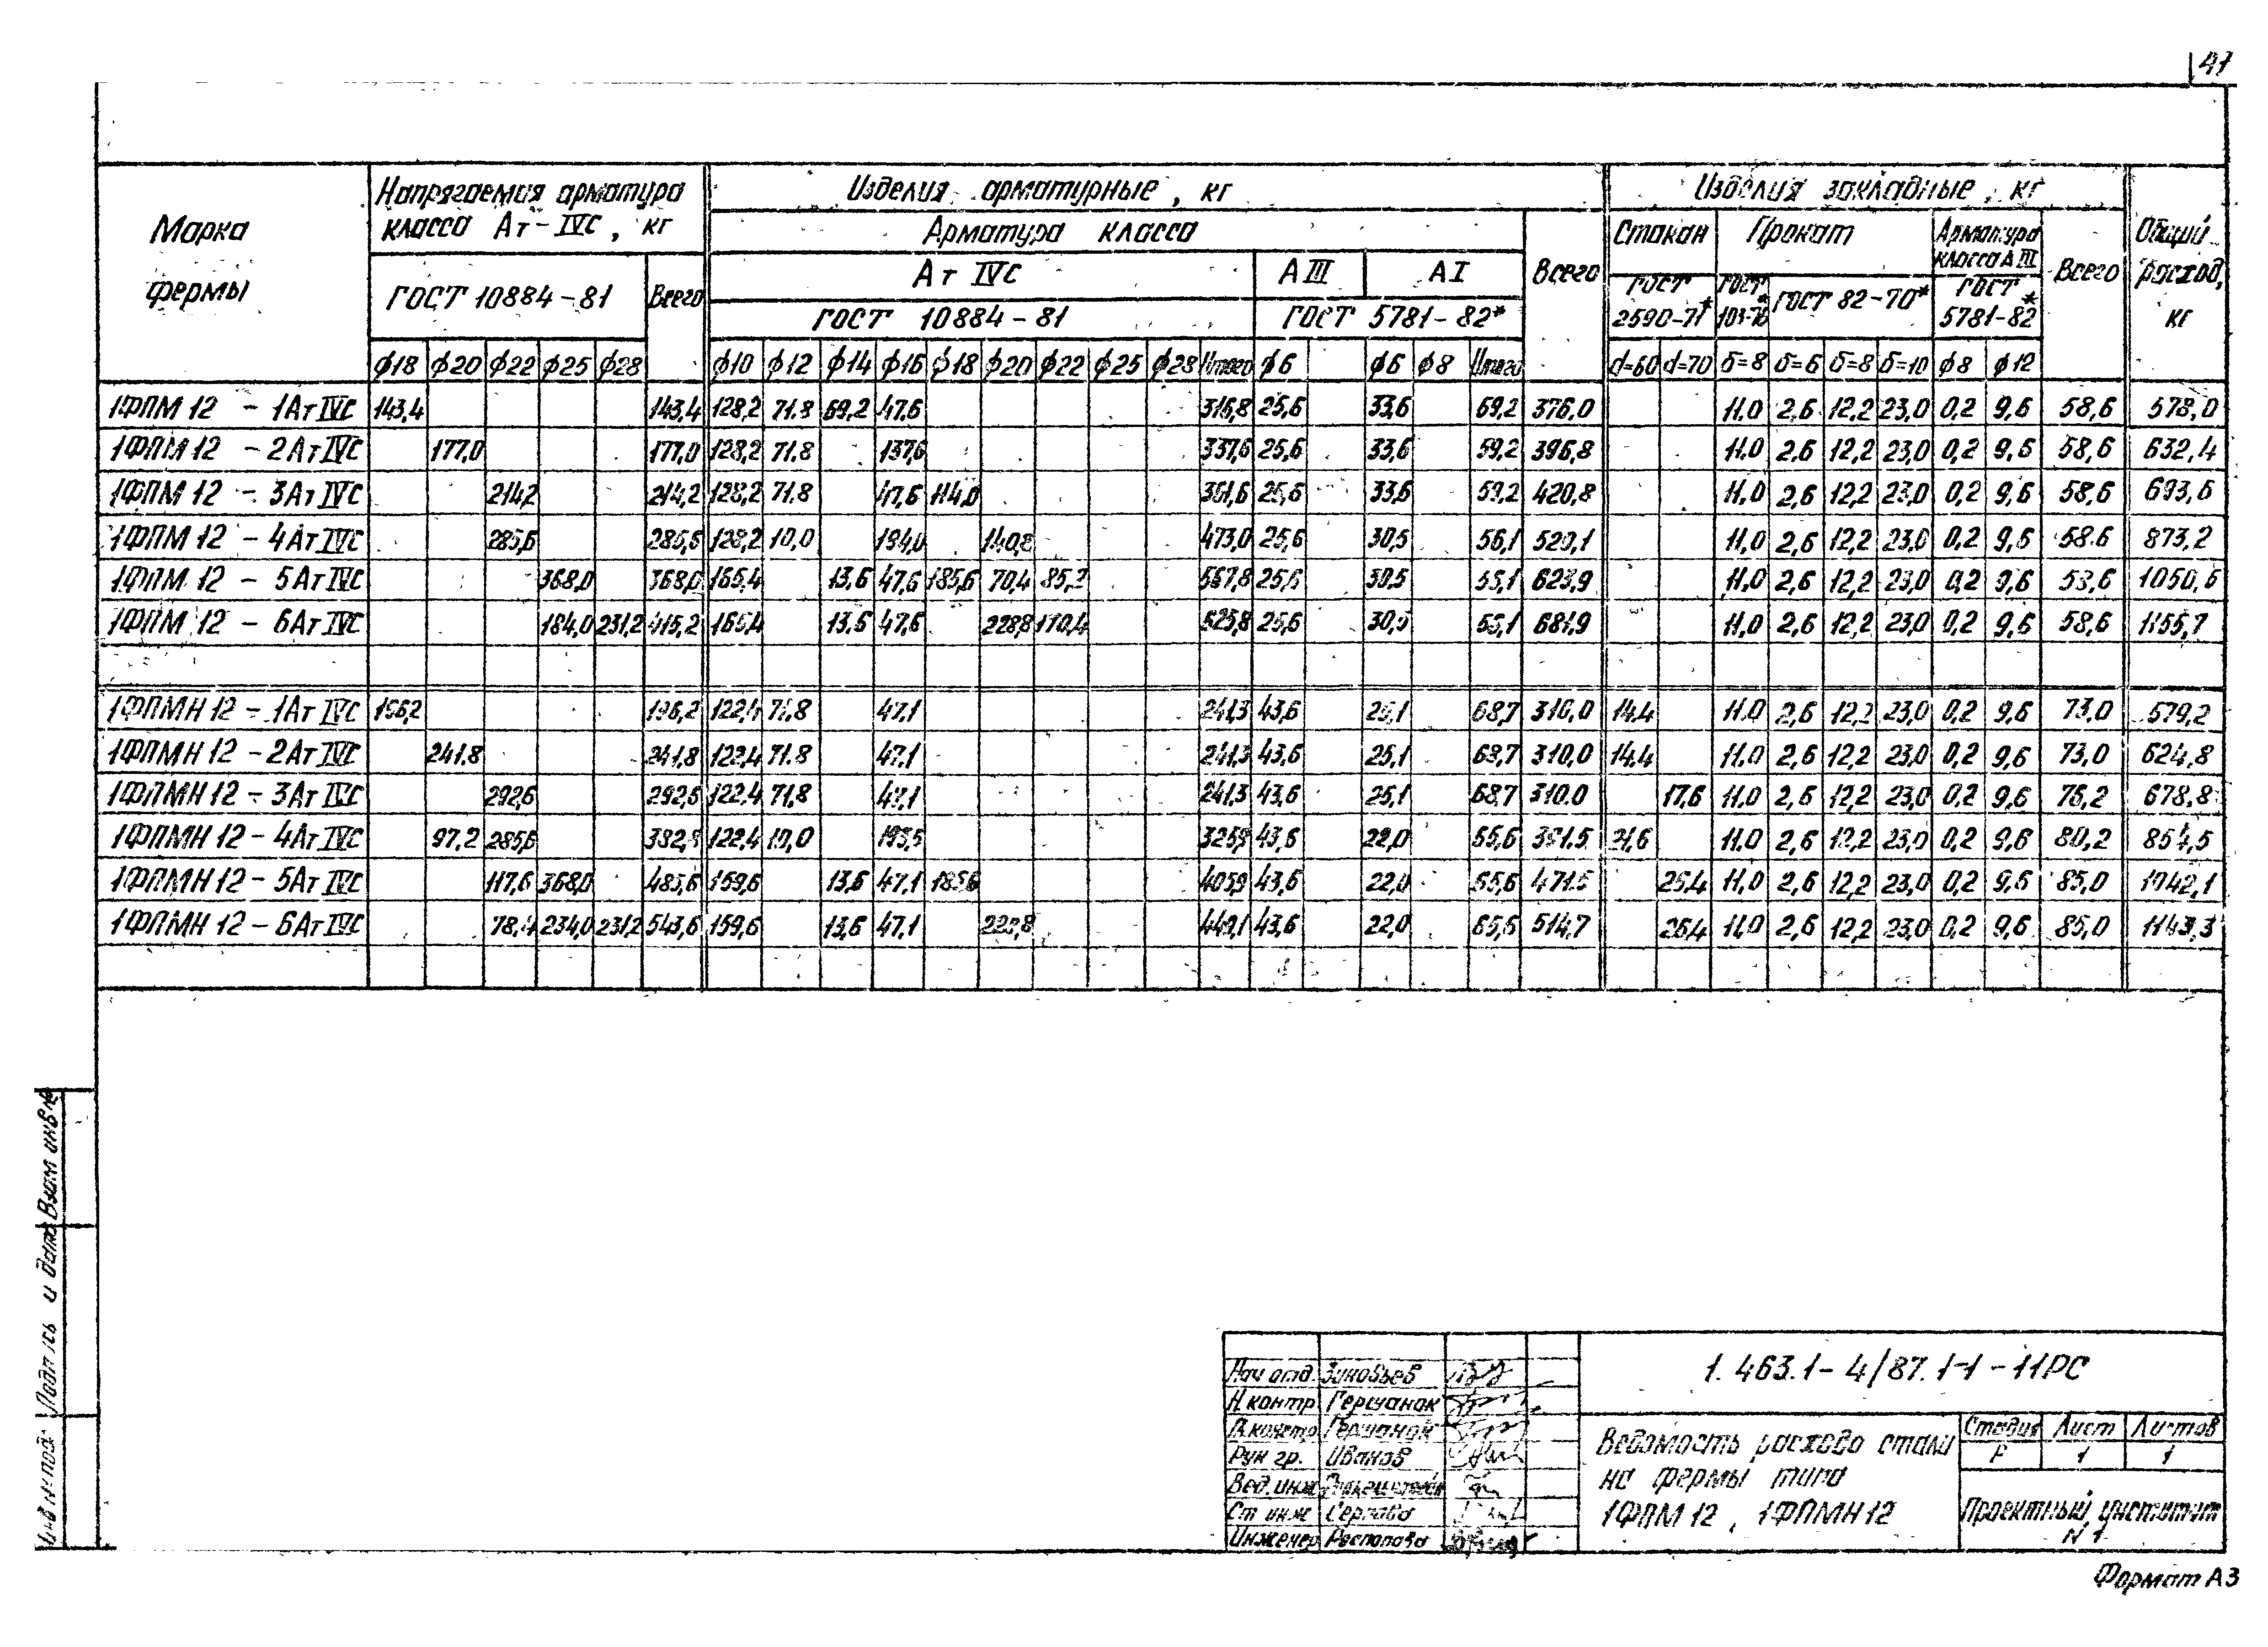 47
Марка фермы
Напрягаемая арматура класса Ат-IVС, кг
Изделия арматурные, кг
Изделия закладные, кг
Общий расход, кг
Арматура класса
Всего
Стакан
Прокат
Арматура класса А III
Всего
ГОСТ 10884-81
Всего
Ат IVС
А III
А I
ГОСТ 10884-81
ГОСТ 5781-82*
ГОСТ 2590-71*
ГОСТ 103-76*
ГОСТ 82-70*
ГОСТ 5781-82*
ϕ18 ϕ20 ϕ22 ϕ25 ϕ28 ϕ10 ϕ12 ϕ14 ϕ16 ϕ18 ϕ20 ϕ22 ϕ25 ϕ28 Итого ϕ6 ϕ6 ϕ8 Итого d=60 d=70 δ=8 δ=6 δ=8 δ=10 ϕ8 ϕ12
1ФПМ 12 - 1Ат IVС 143,4 143,4 128,2 71.8 69,2 47.6 316,8 25,6 33,6 376.0 11.0 2,6 12,2 23,0 0,2 9,6 58,6 578,0
1ФПМ 12 - 2Ат IVС 177,0 177,0 128,2 71.8 137,6 337,6 25,6 33,6 59,2 396,8 11.0 2,6 12,2 23,0 0,2 9,6 58,6 632,4
1ФПМ 12 - 3Ат IVС 214,2 214,2 128,2 71.8 47,6 114,0 361,6 25,6 33,6 59,2 420,8 11.0 2,6 12,2 23,0 0,2 9,6 58,6 693,6
1ФПМ 12 - 4Ат IVС 285,6 285,6 128,2 10,0 194,0 140,8 473,0 25,6 30,5 56,1 529,1 11.0 2,6 12,2 23,0 0,2 9,6 58.6 873,2
1ФПМ 12 - 5Ат IVС 368,0 368,0 165,4 13,6 47,6 185,6 70,4 85,2 567,8 25,6 30,5 623,9 11.0 2,6 12,2 23,0 0,2 9,6 58,6 1050,6
1ФПМ 12 - 6Ат IVС 184,0 231,2 415,2 165,4 13,6 47,6 228,8 170,4 625,8 25,6 30,5 681,9 11.0 2,6 12,2 23,0 0,2 9,6 58,6 1155,7
1ФПМН 12 - 1Ат IVС 196,2 196,2 122,4 71,8 47.1 241,3 43,6 25,1 68,7 310,0 14.4 11.0 2,6 12,2 23,0 0,2 9,6 73,0 579,2
1ФПМН 12 - 2Ат IVС 241.8 241,8 122,4 71.8 47,1 241,3 43,6 25,1 68,7 310,0 14.4 11.0 2,6 12,2 23,0 0,2 9,6 73,0 624,8
1ФПМН 12 - 3Ат IVС 292,6 292,6 122,4 71,8 47,1 241,3 43,6 25,1 68,7 310.0 17,6 11,0 2,6 12,2 23,0 0,2 9,6 76,2 678,8
1ФПМН 12 - 4Ат IVС 97,2 285,6 382,8 122,4 10,0 193,5 325,9 43,6 22,0 65,6 391.5 21,6 11.0 2,6 12,2 23,0 0,2 9,6 80,2 854,5
1ФПМН 12 - 5Ат IVС 117,6 368,0 485,6 159,6 13,6 47,1 185,6 405,9 43,6 22,0 65,6 471.5 26,4 11,0 2,6 12,2 23,0 0,2 9,6 85,0 1042,1
1ФПМН 12 - 6Ат IVС 78,4 234,0 231,2 543,6 159,6 13,6 47.1 228,8 449,1 43,6 22,0 65,6 514,7 26,4 11,0 2,6 12,2 23,0 0,2 9,6 85,0 1143,3
Взам инв №
Подпись и дата
Инв № под.
Нач отд. Зиновьев
Н. контр Гершанок
Гершанок
Рук гр. Иванов
Вед. инж
Ст инж Серова
Инженер Распопова
1. 463.1-4/87. 1-1 - 11РС
Ведомость расхода стали на фермы типа 1ФПМ 12, 1ФПМН 12
Стадия Лист Листов
Р 1 1
Проектный институт N 1
Формат А3